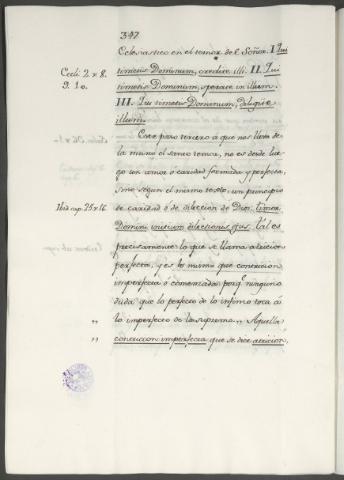 347
Eclesiastico en el temor del Señor. I. Qui
timetis Dominum, credite illi. II. Qui
timetis Dominum, sperate in illum.
III. Qui timetis Dominum, diligite
illum.
Eccli. 2 v 8.
9. 10.
Este paso tercero á que nos lleva de
la mano el santo temor, no es desde lue-
go un amor ó caridad formada y perfecta,
sino segun el mismo texto, un principio
de caridad ó de dileccion de Dios: timor
Domini initium dilectionis ejus. Tal es
precisamente lo que se llama atricion
perfecta, y es lo mismo que contricion
imperfecta ó comenzada porq.e ninguno
duda que lo perfecto de lo infimo toca á
lo imperfecto de lo supremo. Aquella
contriccion imperfecta que se dice atricion,
Ibid cap. 25 v 16.